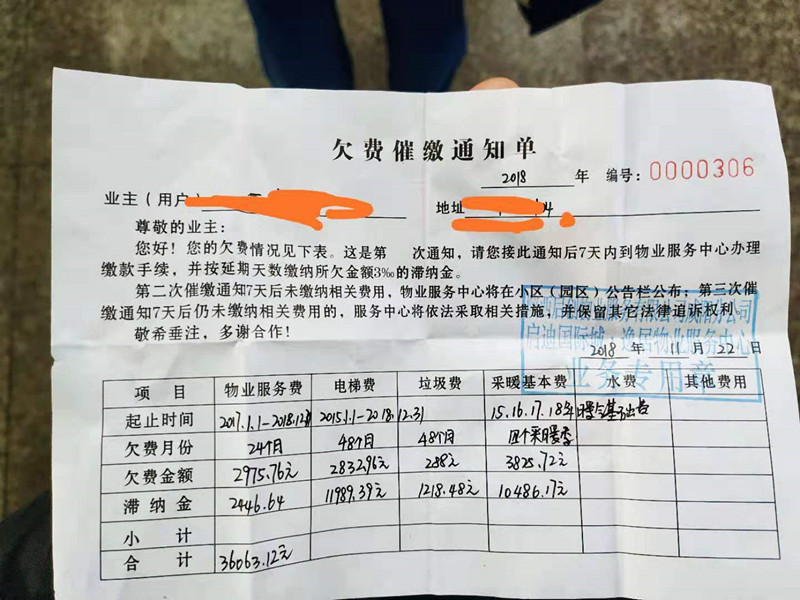 欠费催缴通知单
2018 年 编号: 0000306
业主(用户) 地址
尊敬的业主:
您好!您的欠费情况见下表。这是第 次通知,请您接此通知后7天内到物业服务中心办理
缴款手续,并按延期天数缴纳所欠金额3‰的滞纳金。
第二次催缴通知7天后未缴纳相关费用,物业服务中心将在小区(园区)公告栏公布;第三次催
缴通知7天后仍未缴纳相关费用的,服务中心将依法采取相关措施,并保留其它法律追诉权利
敬希垂注,多谢合作!
启迪国际城·逸居物业服务中心
2018 年 11 月 22 日
业务专用章
项 目 物业服务费 电梯费 垃圾费 采暖基本费 水费 其他费用
起止时间 2017.1.1-2018.12.31 2015.1.1-2018.12.31 15.16.17.18年
欠费月份 24个月 48个月 48个月 四个采暖季
欠费金额 2975.76元 2832.96元 288元 3825.72元
滞纳金 2446.64 11989.39元 1218.48元 10486.17元
小 计
合 计 36063.12元